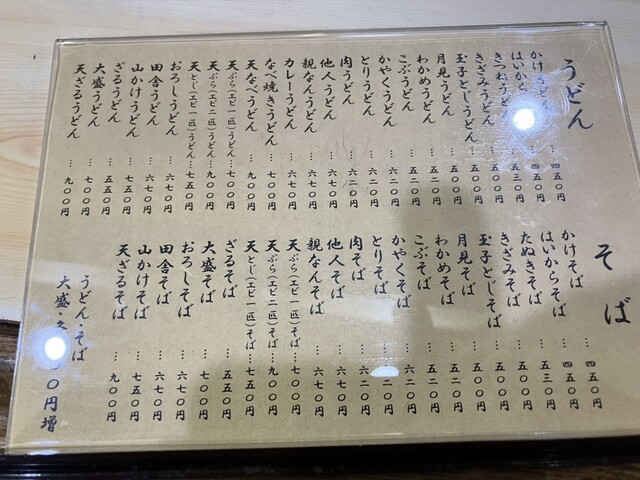 うどん
かけうどん … 四五〇円
はいから … 四五〇円
きつねうどん … 五三〇円
きざみうどん … 五五〇円
玉子とじうどん … 五五〇円
月見うどん … 五二〇円
わかめうどん … 五二〇円
こぶうどん … 五二〇円
かやくうどん … 六二〇円
とりうどん … 六二〇円
肉うどん … 六二〇円
他人うどん … 六七〇円
親なんうどん … 六七〇円
カレーうどん … 六七〇円
なべ焼きうどん … 九〇〇円
天なべうどん … 九〇〇円
天ぷら(エビ一匹)うどん … 七〇〇円
天ぷら(エビ二匹)うどん … 九〇〇円
天とじ(エビ一匹)うどん … 七五〇円
おろしうどん … 六七〇円
田舎うどん … 六七〇円
山かけうどん … 六七〇円
ざるうどん … 五五〇円
大盛うどん … 七〇〇円
天ざるうどん … 九〇〇円
そば
かけそば … 四五〇円
はいからそば … 四五〇円
たぬきそば … 五三〇円
きざみそば … 五五〇円
玉子とじそば … 五五〇円
月見そば … 五二〇円
わかめそば … 五二〇円
こぶそば … 五二〇円
かやくそば … 六二〇円
とりそば … 二〇円
肉そば … 六二〇円
他人そば … 六七〇円
親なんそば … 六七〇円
天ぷら(エビ一匹)そば … 七〇〇円
天ぷら(エビ二匹)そば … 九〇〇円
天とじ(エビ一匹)そば … 七五〇円
ざるそば … 五五〇円
大盛そば … 七〇〇円
おろしそば … 六七〇円
田舎そば … 六七〇円
山かけそば … 六七〇円
天ざるそば … 九〇〇円
うどん・そば
大盛・ 〇円増